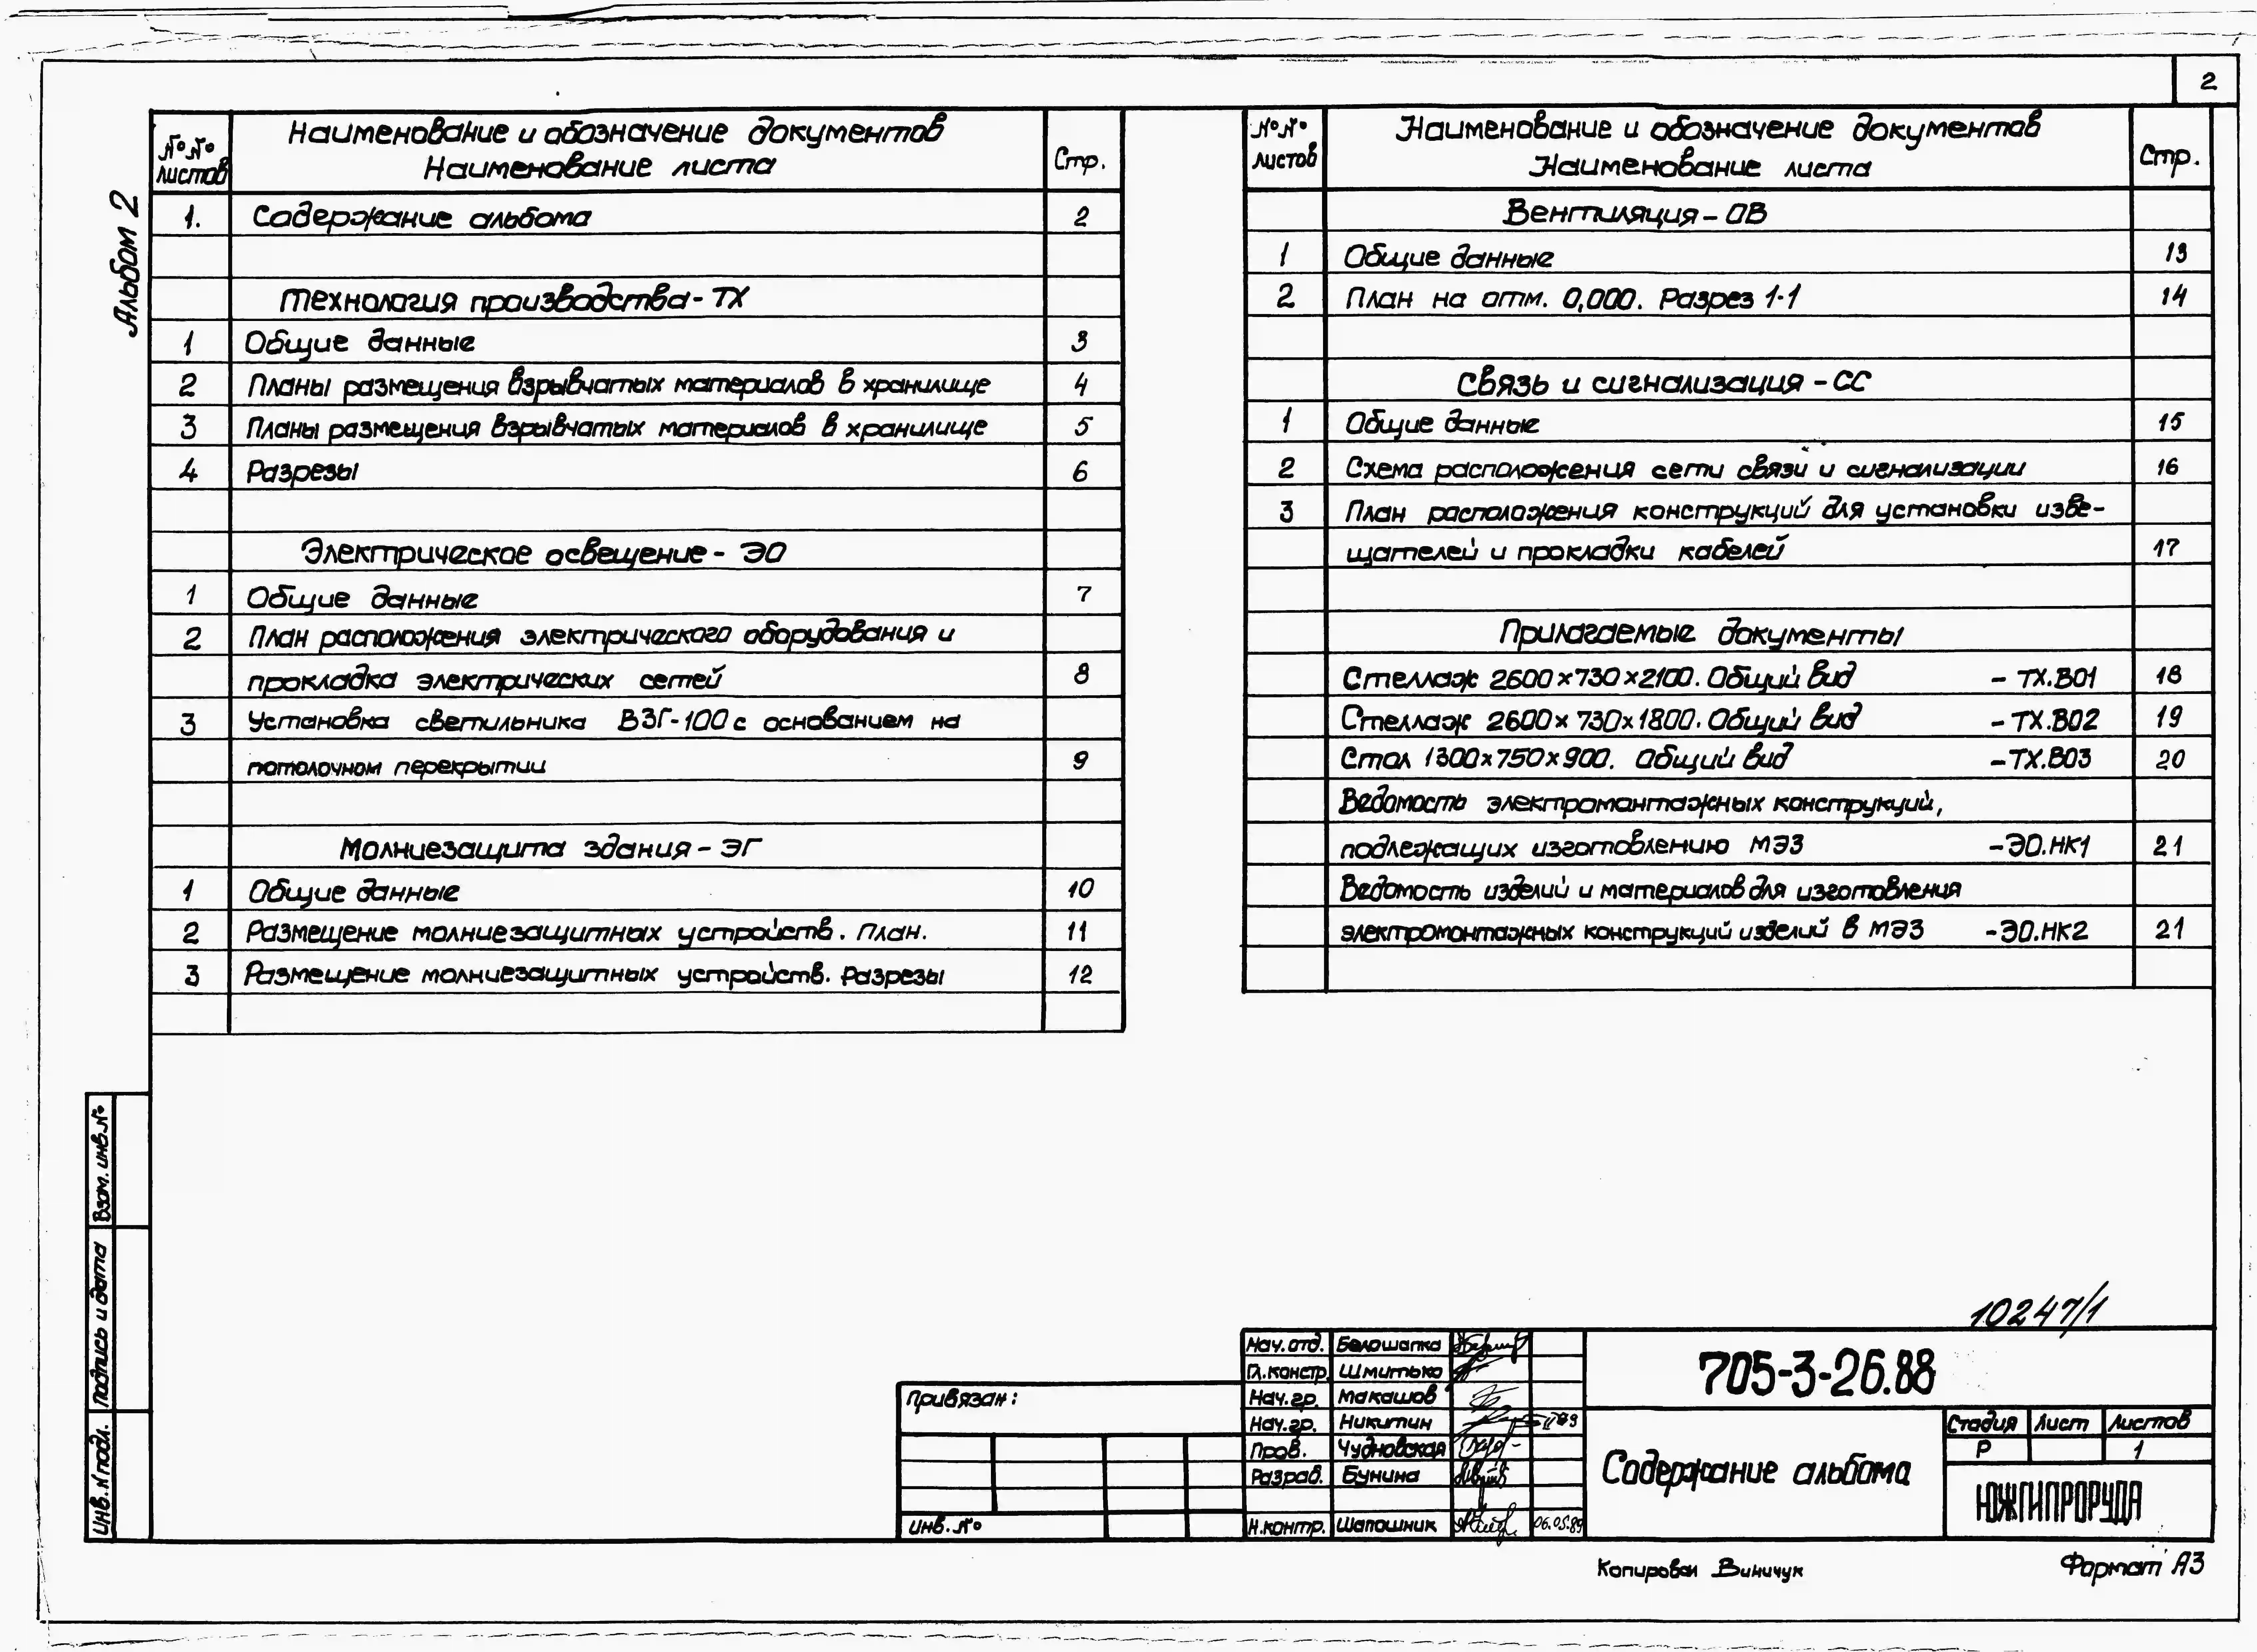 2
Альбом 2
№№ листов
Наименование и обозначение документов
Наименование листа
Стр.
1. Содержание альбома 2
Технология производства - ТХ
1 Общие данные 3
2 Планы размещения взрывчатых материалов в хранилище 4
3 Планы размещения взрывчатых материалов в хранилище 5
4 Разрезы 6
Электрическое освещение - ЭО
1 Общие данные 7
2 План расположения электрического оборудования и
прокладка электрических сетей 8
3 Установка светильника ВЗГ-100 с основанием на
потолочном перекрытии 9
Молниезащита здания - ЭГ
1 Общие данные 10
2 Размещение молниезащитных устройств. План. 11
3 Размещение молниезащитных устройств. Разрезы 12
№№ листов
Наименование и обозначение документов
Наименование листа
Стр.
Вентиляция - ОВ
1 Общие данные 13
2 План на отм. 0,000. Разрез 1-1 14
Связь и сигнализация - СС
1 Общие данные 15
2 Схема расположения сети связи и сигнализации 16
3 План расположения конструкций для установки изве-
щателей и прокладки кабелей 17
Прилагаемые документы
Стеллаж 2600×730×2100. Общий вид - ТХ.В01 18
Стеллаж 2600×730×1800. Общий вид - ТХ.В02 19
Стол 1300×750×900. Общий вид - ТХ.В03 20
Ведомость электромонтажных конструкций,
подлежащих изготовлению МЭЗ - ЭО.НК1 21
Ведомость изделий и материалов для изготовления
электромонтажных конструкций изделий в МЭЗ - ЭО.НК2 21
Взам. инв. №
Подпись и дата
Инв. N подл.
10247/1
Привязан:
Инв. №
Нач. отд. Белошапка
Гл. констр. Шмитько
Нач. гр. Макашов
Нач. гр. Никитин
Пров. Чудновская
Разраб. Бунина
Н. контр. Шапошник 06.05.89
705-3-26.88
Содержание альбома
Стадия Лист Листов
Р 1
ЮЖГИПРОРУДА
Копировал Виничук
Формат А3